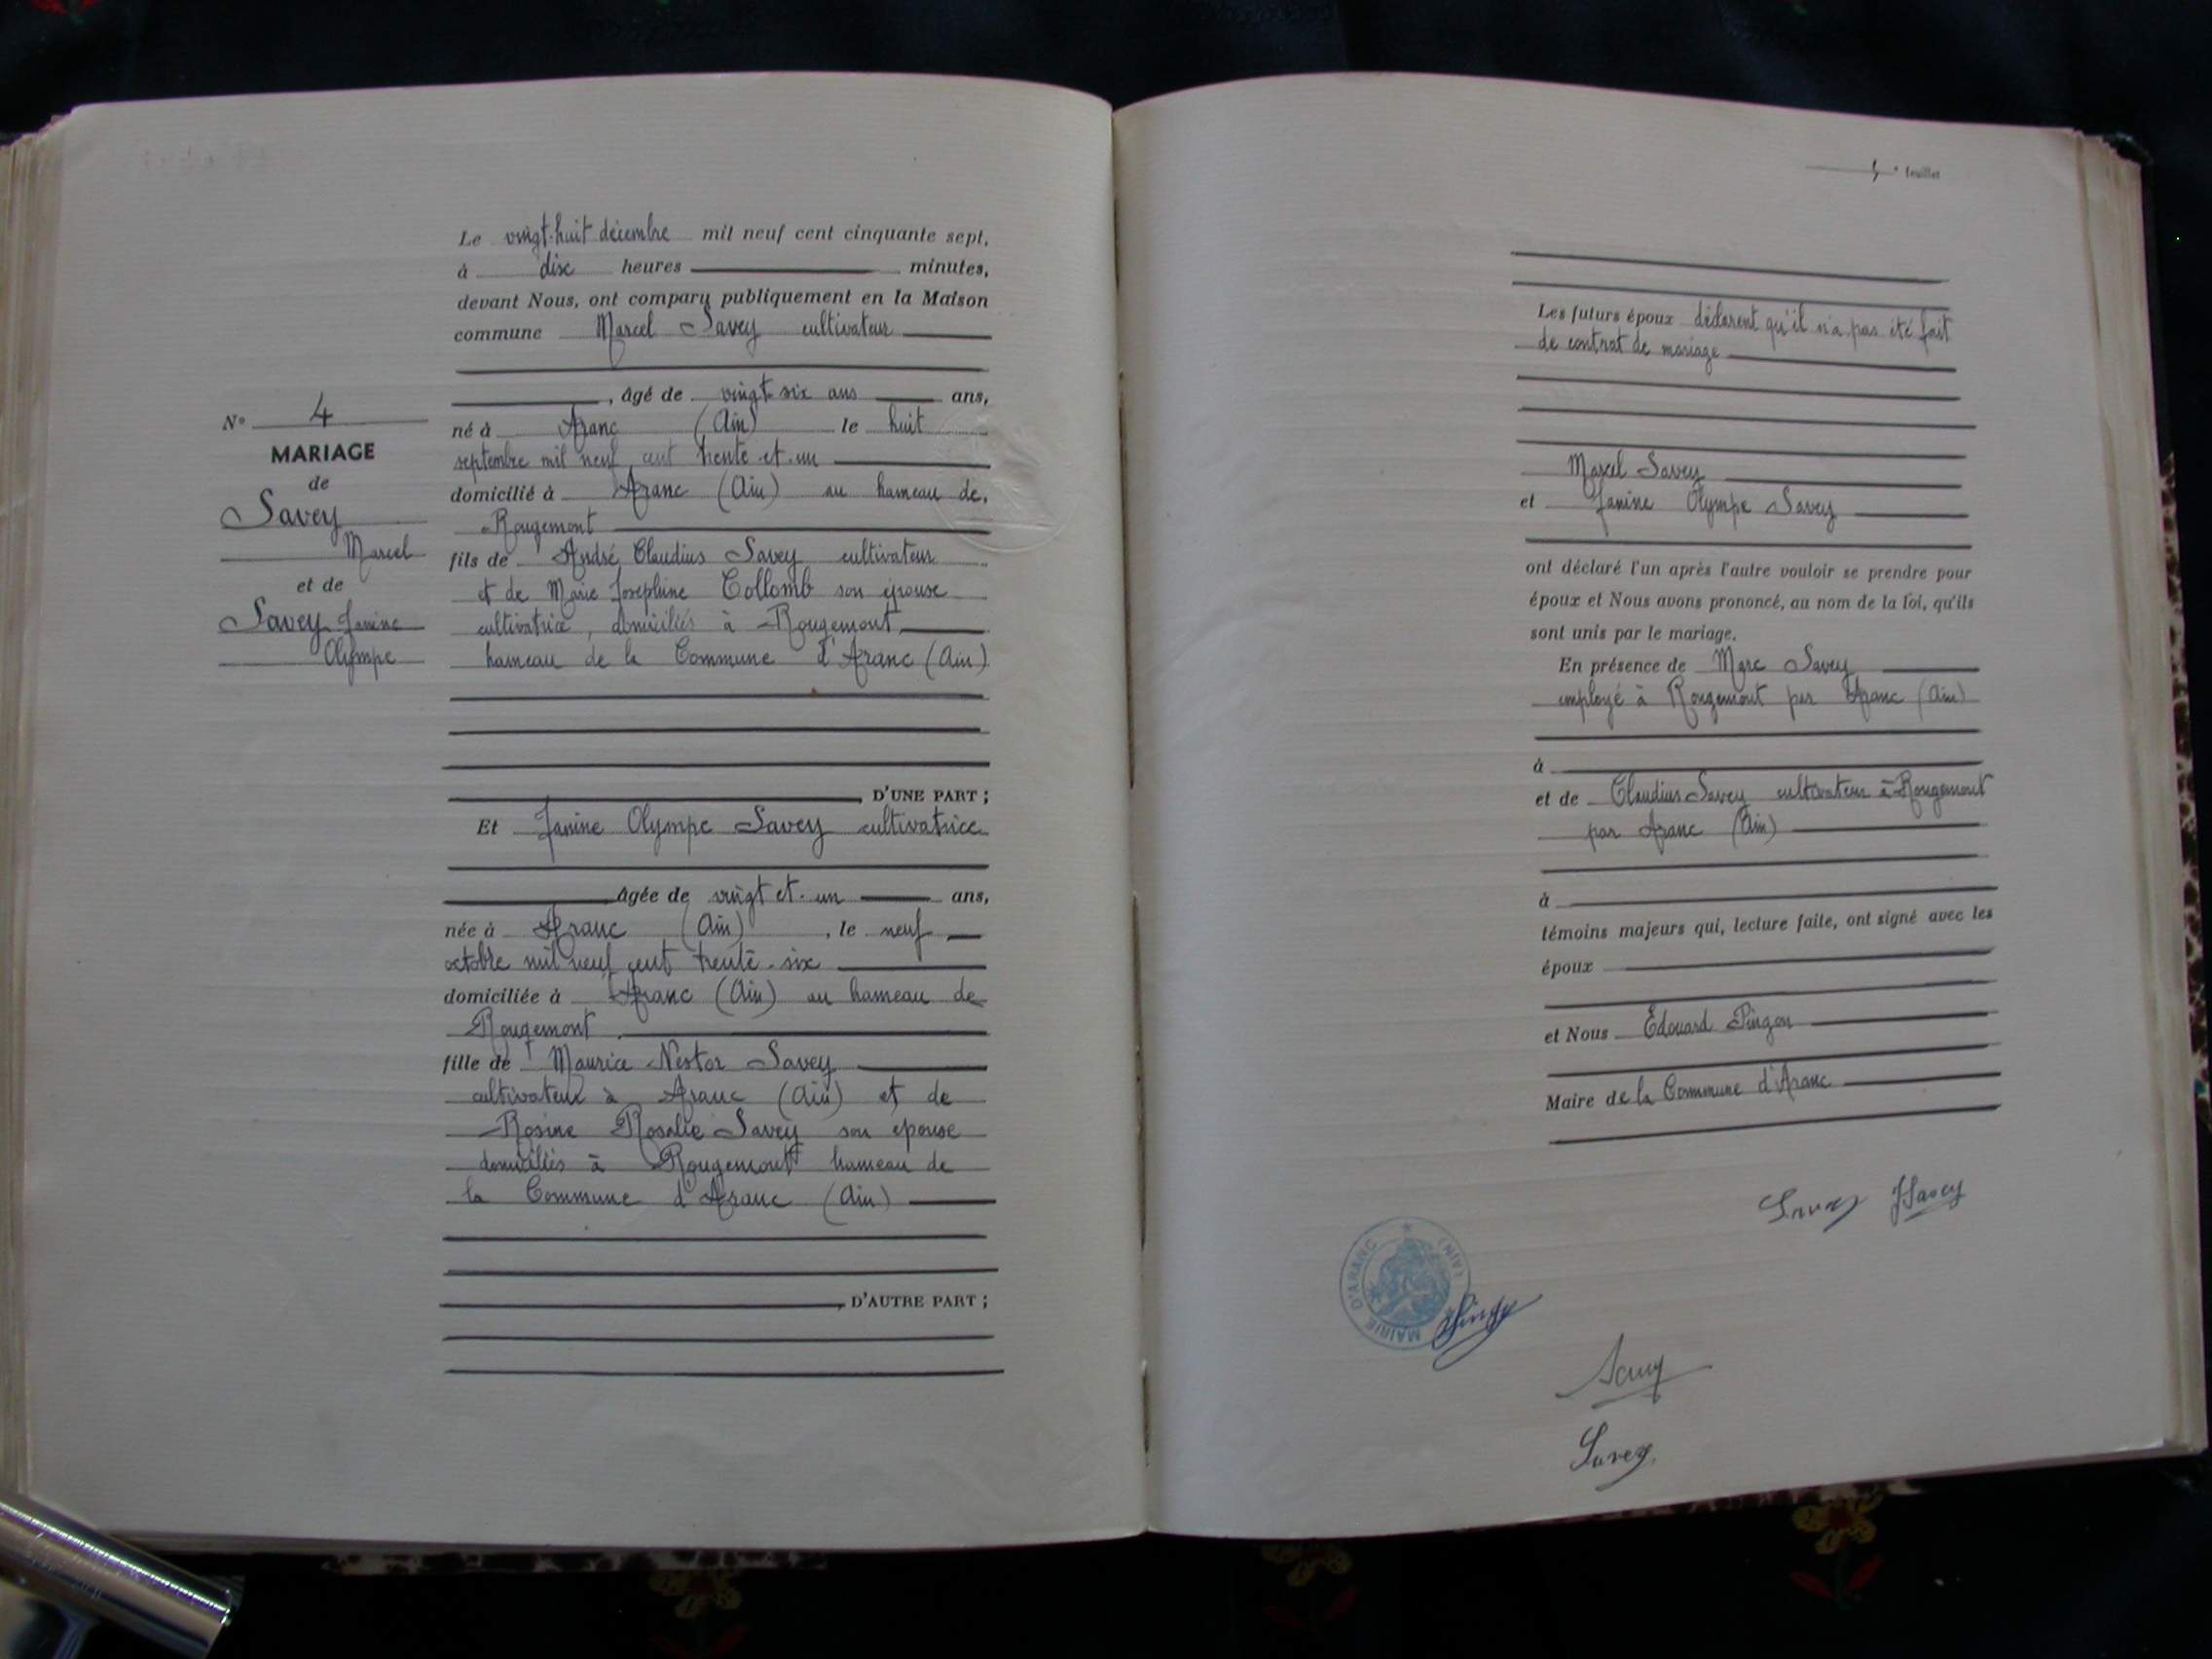 Le vingt-huit décembre mil neuf cent cinquante sept,
à dix heures minutes,
devant Nous, ont comparu publiquement en la Maison
commune Marcel Savey cultivateur
, âgé de vingt-six ans ans,
né à Aranc (Ain) le huit
septembre mil neuf cent trente-et-un
domicilié à Aranc (Ain) au hameau de
Rougemont
fils de André Claudius Savey cultivateur
et de Marie Josephine Collomb son épouse
cultivatrice, domiciliés à Rougemont
hameau de la Commune d'Aranc (Ain)
N° 4
MARIAGE
de
Savey
Marcel
et de
Savey Janine
Olympe
D'UNE PART ;
Et Janine Olympe Savey cultivatrice
, âgée de vingt et un ans,
née à Aranc (Ain) , le neuf
octobre mil neuf cent trente-six
domiciliée à Aranc (Ain) au hameau de
Rougemont
fille de Maurice Nestor Savey
cultivateur à Aranc (Ain) et de
Rosine Rosalie Savey son épouse
domiciliés à Rougemont hameau de
la Commune d'Aranc (Ain)
D'AUTRE PART ;
feuillet
Les futurs époux déclarent qu'il n'a pas été fait
de contrat de mariage
Marcel Savey
et Janine Olympe Savey
ont déclaré l'un après l'autre vouloir se prendre pour
époux et Nous avons prononcé, au nom de la loi, qu'ils
sont unis par le mariage.
En présence de Marc Savey
employé à Rougemont par Aranc (Ain)
à
et de Claudius Savey cultivateur à Rougemont
par Aranc (Ain)
à
témoins majeurs qui, lecture faite, ont signé avec les
époux
et Nous Édouard Pingon
Maire de la Commune d'Aranc
Savey JSavey
MAIRIE D'ARANC (AIN)
Savey
Savey